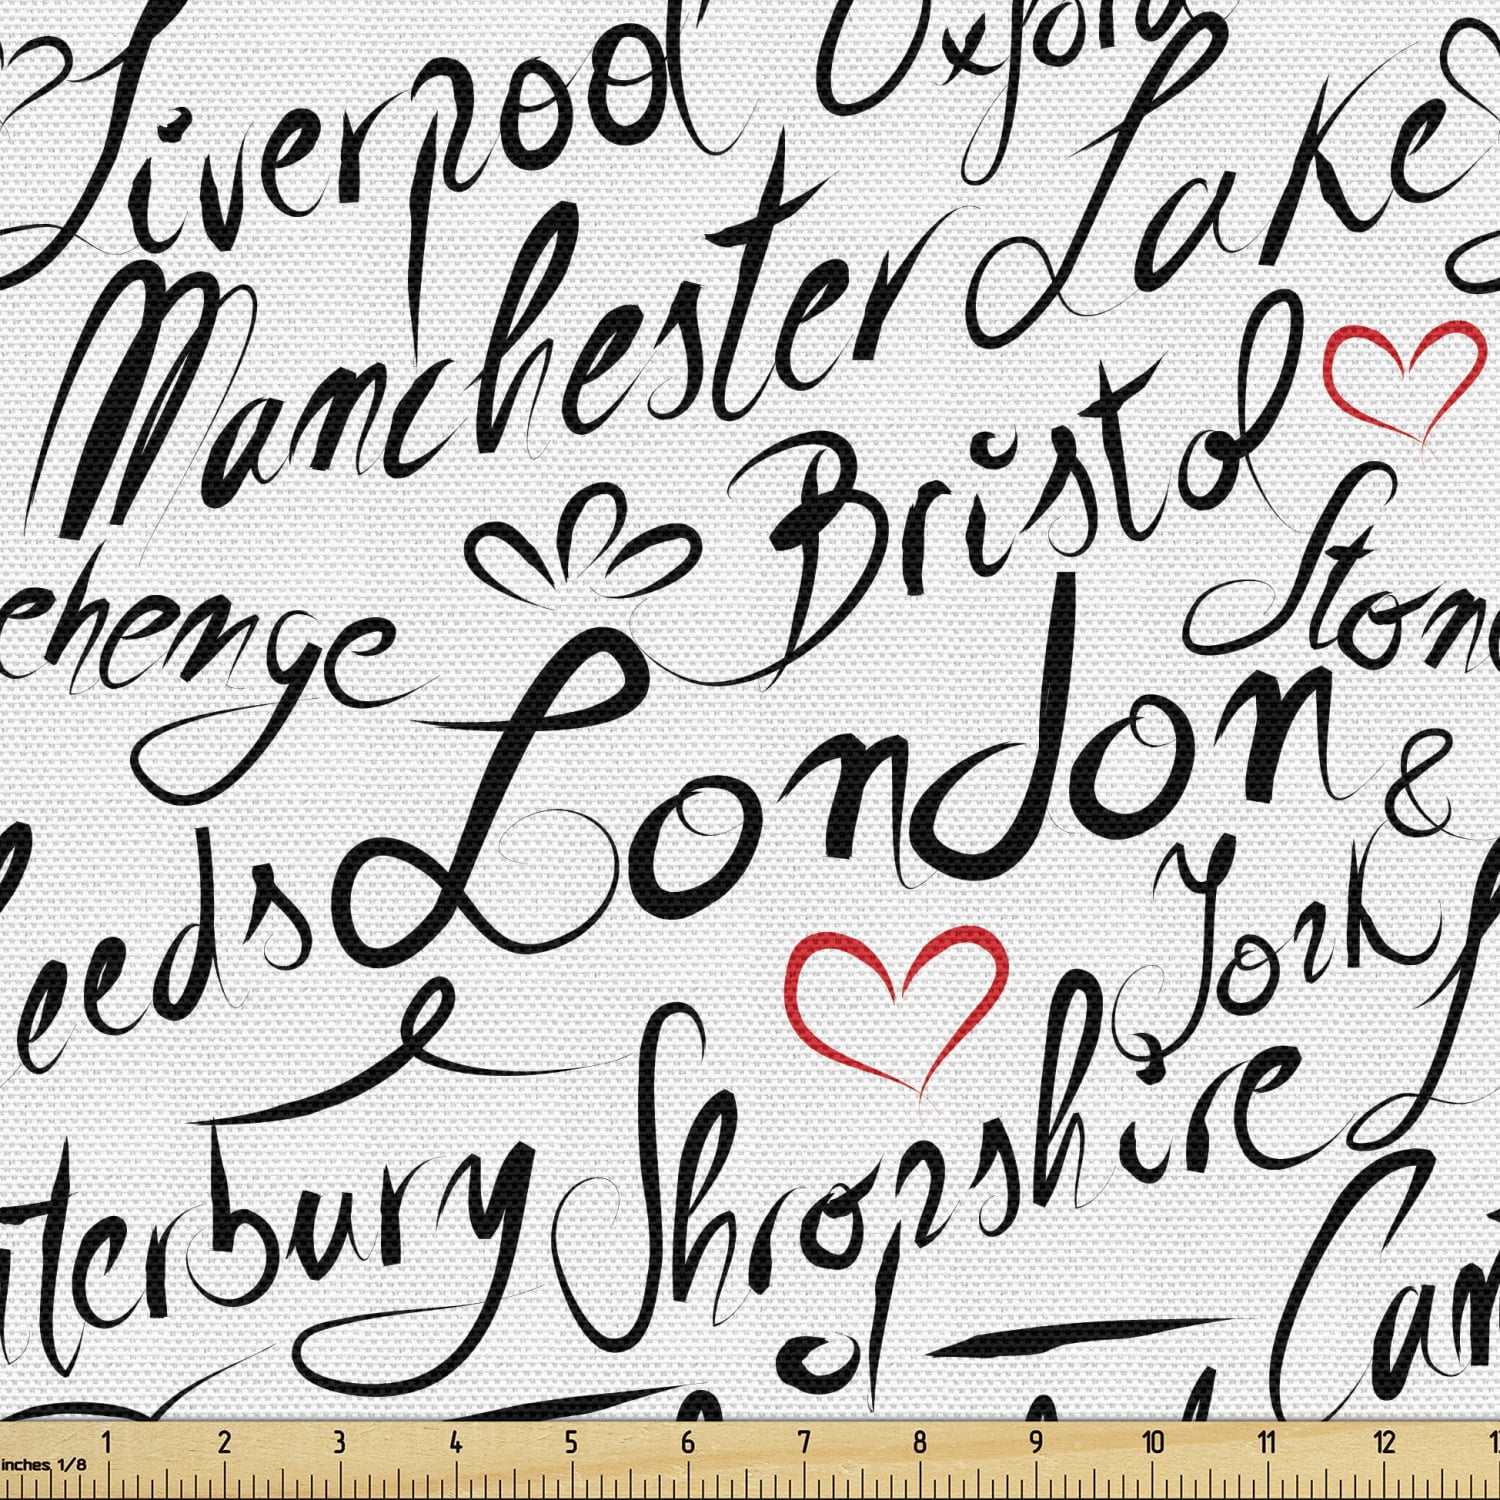 Liverpool
Oxford
Lake
Manchester
Bristol
Stone
ehenge
London
&
York
eeds
Shropshire
terbury
Can
1 2 3 4 5 6 7 8 9 10 11 12
inches 1/8